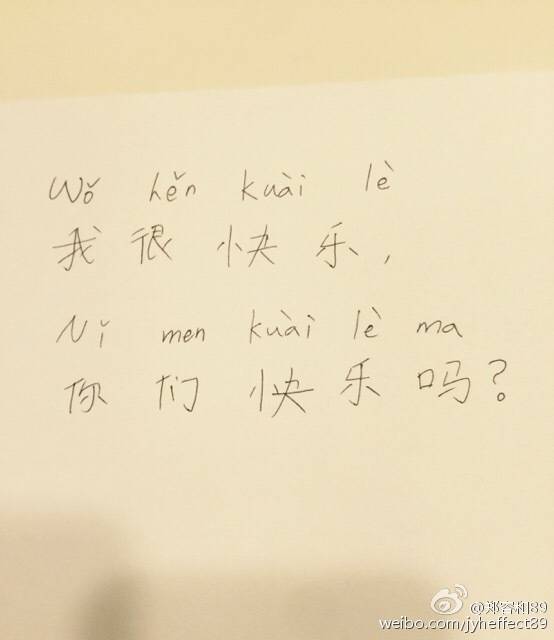 Wǒ hěn kuài lè
我 很 快 乐,
Nǐ men kuài lè ma
你 们 快 乐 吗?
@郑容和89
weibo.com/jyheffect89